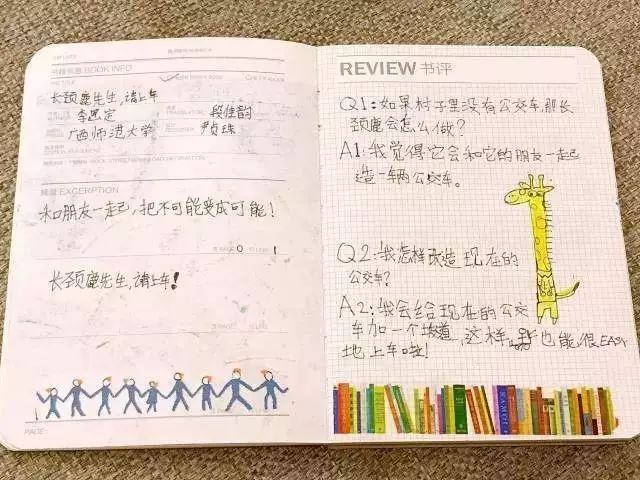 书籍信息 BOOK INFO
长颈鹿先生,请上车
李思定 段佳韵
广西师范大学 尹贞珠
摘录 EXCERPTION
和朋友一起,把不可能变成可能!
TO PAGE 0 TO LINE 1
长颈鹿先生,请上车!
TO PAGE TO LINE
PAGE:
REVIEW 书评
Q1:如果村子里没有公交车,那长
颈鹿会怎么做?
A1:我觉得它会和它的朋友一起
造一辆公交车。
Q2:我怎样改造现在的
公交车?
A2:我会给现在的公交
车加一个坡道,这样 也能很EASY
地上车啦!